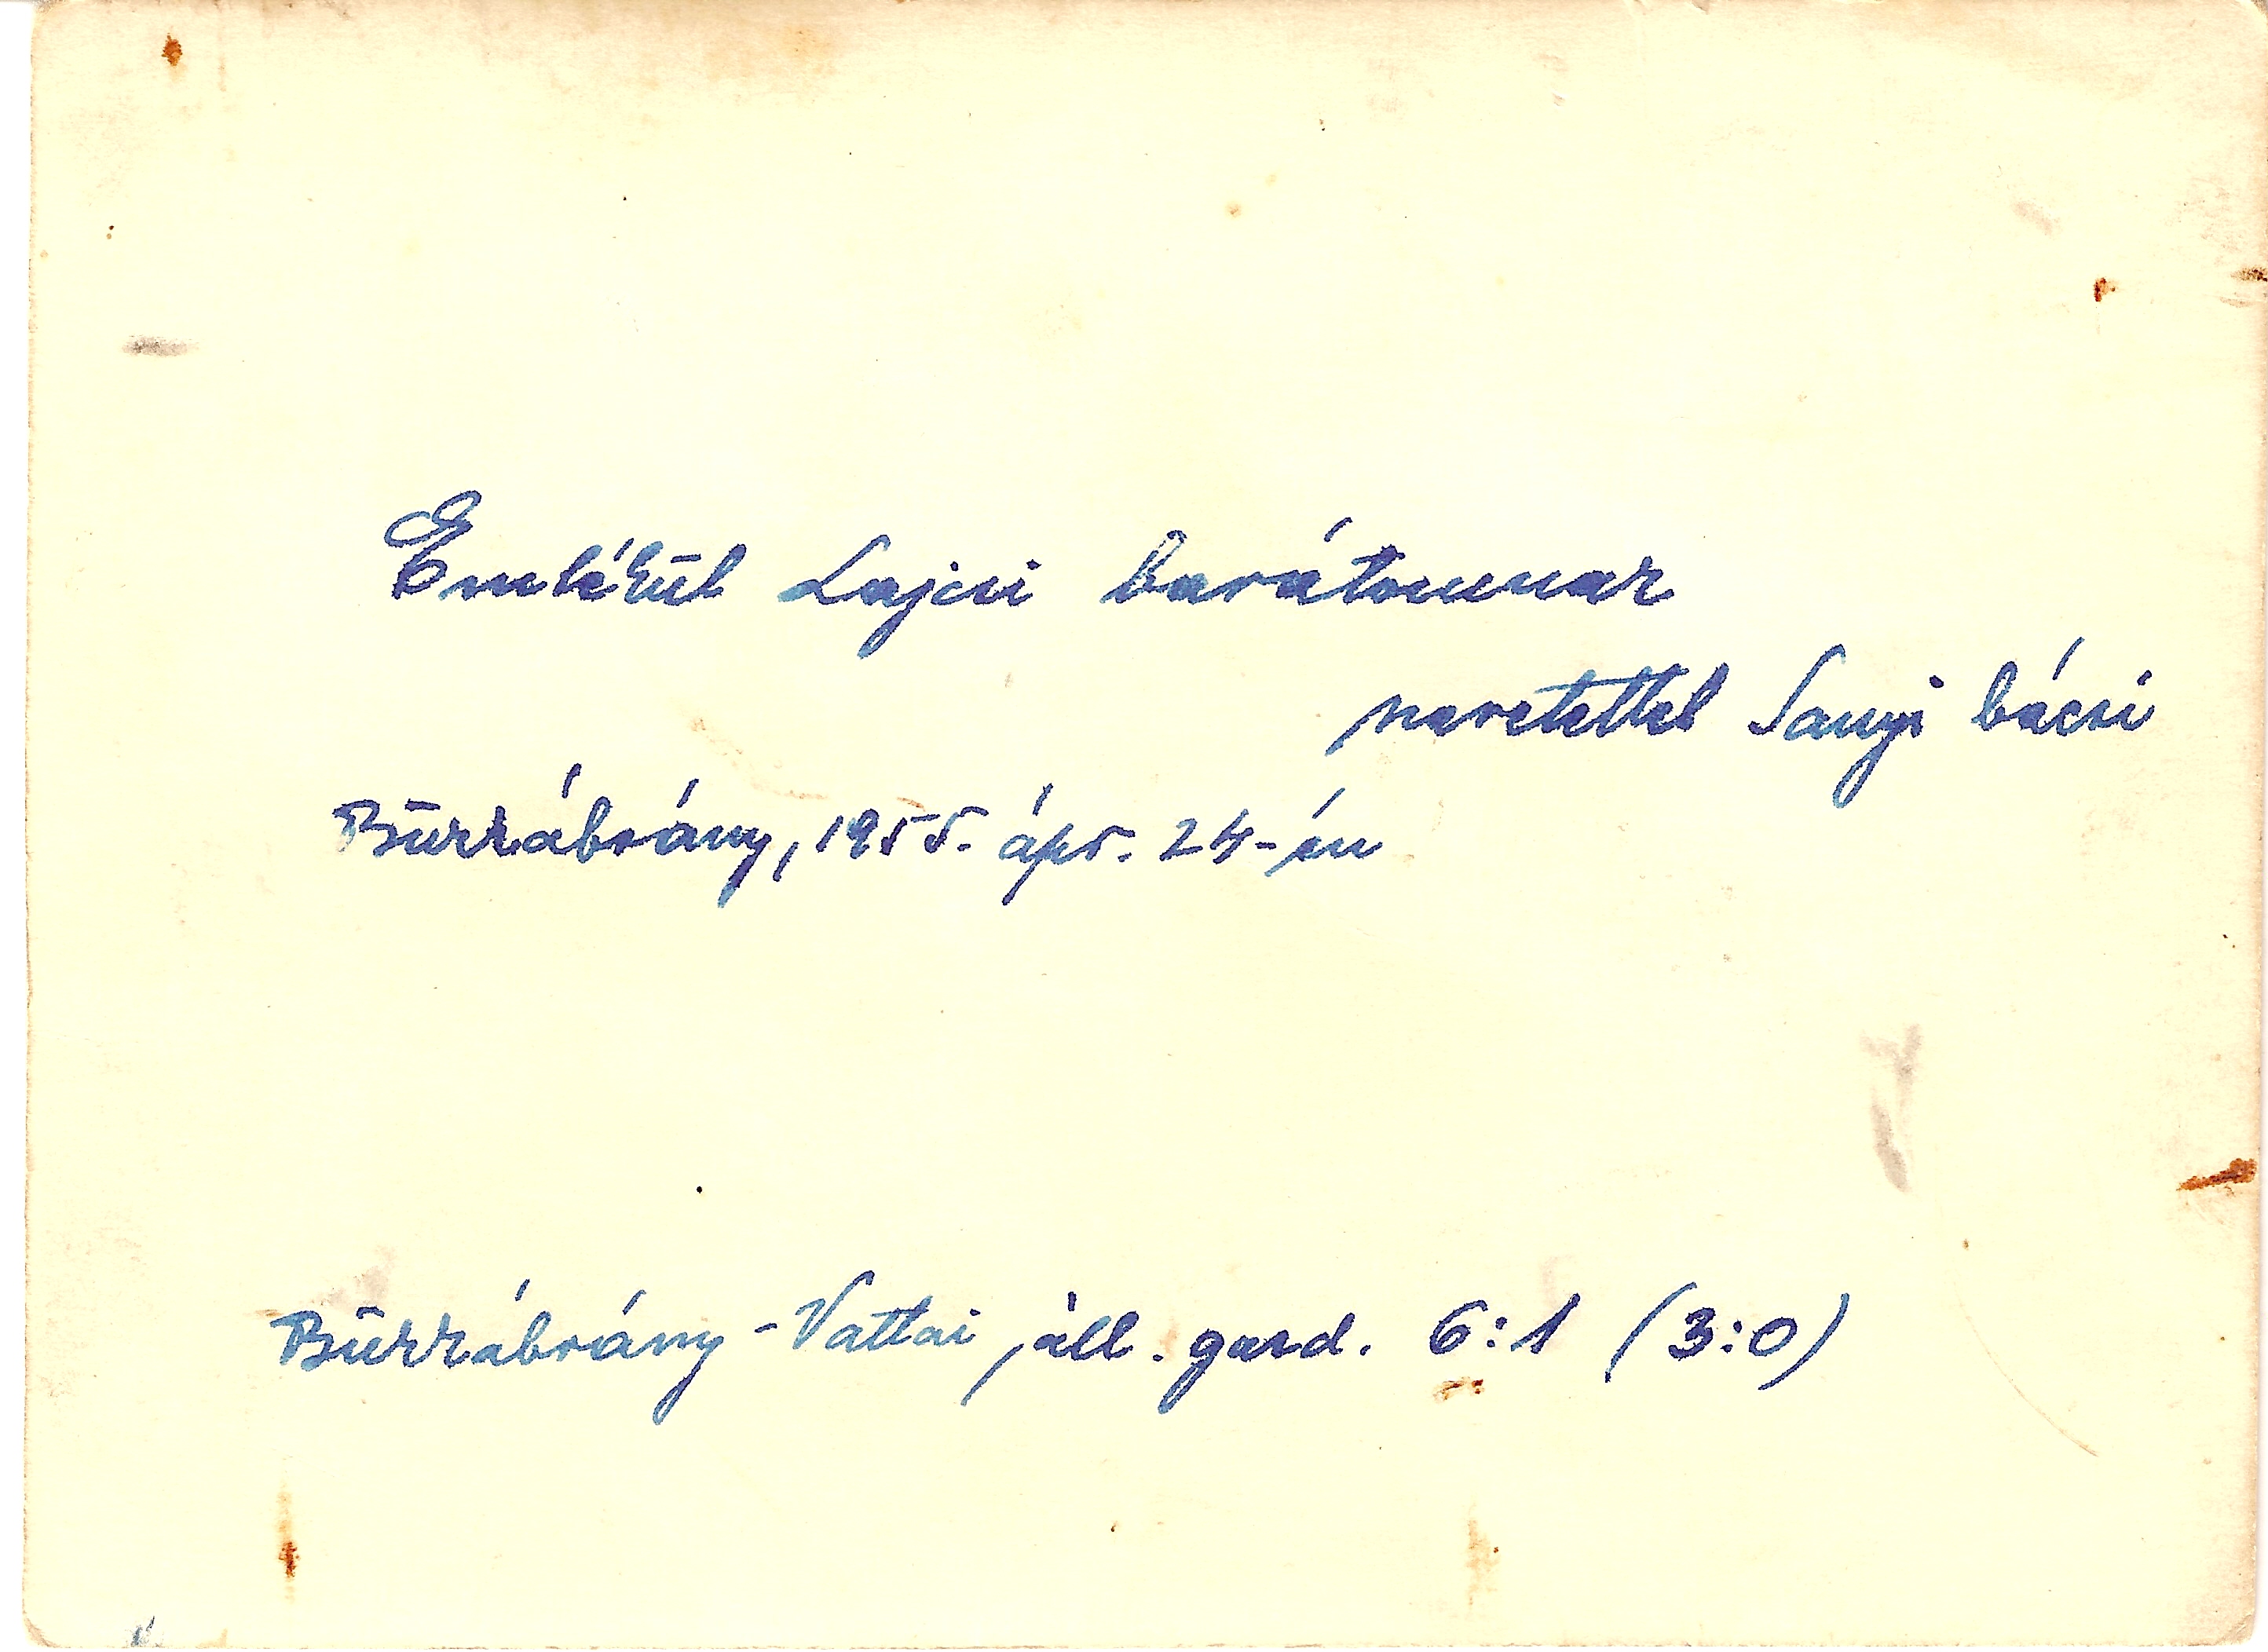 Emlékül Lajcsi barátomnak
szeretettel Sanyi bácsi
Bükkábrány, 1955. ápr. 24-én
Bükkábrány - Vattai áll. gazd. 6:1 (3:0)